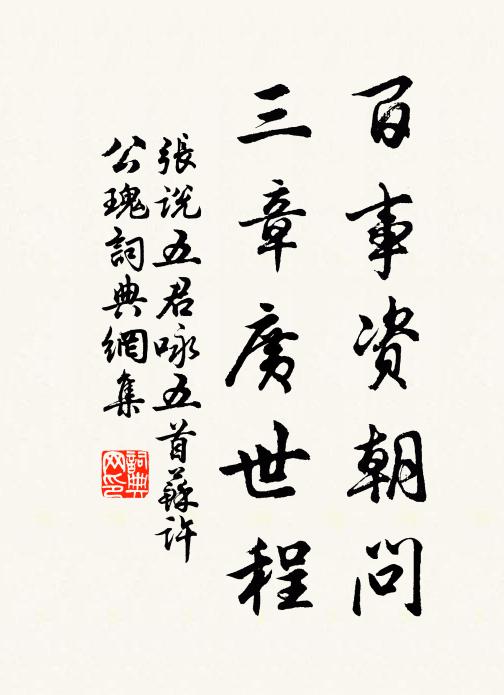 百事資朝問
三章廣世程
張說五君咏五首蘇許
公瑰詞典網集
詞典
网印